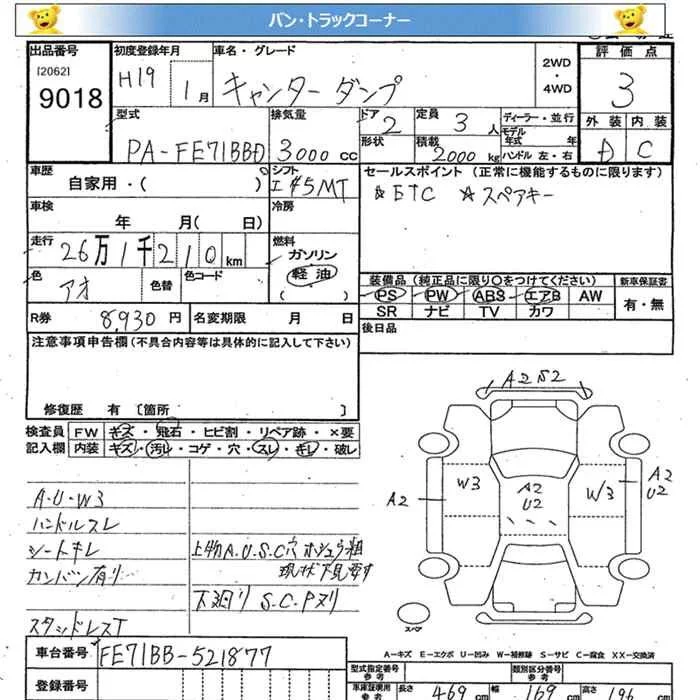 バン・トラックコーナー
出品番号 初度登録年月 車名・グレード 2WD ・ 4WD 評価点
[2062] 9018 H19 1月 キャンター ダンプ 3
型式 排気量 ドア 定員 ディーラー・並行 外装 内装
PA-FE71BBD 3000cc 2 3人 モデル年式 年
形状 積載 2000kg ハンドル 左・右 D C
車歴 シフト セールスポイント (正常に機能するものに限ります)
自家用・( ) 5MT ☆ETC ☆スペアキー
車検 冷房
年 月( 日)
走行 燃料
26万1千210km ガソリン
軽油
色 色替 色コード ( ) 装備品 (純正品に限り○をつけてください) 新車保証書
アオ PS PW ABS エアB AW 有・無
SR ナビ TV カワ
R券 8,930円 名変期限 月 日 後日品
注意事項申告欄(不具合内容等は具体的に記入して下さい)
修復歴 有 [箇所 ]
検査員 FW キズ・飛石・ヒビ割・リペア跡・×要
記入欄 内装 キズ・汚レ・コゲ・穴・スレ・キレ・破レ
A2S2
A・U・W3
ハンドルスレ
シートキレ 上物A.U.S.C穴ホシュウ粗
カンバン有り 現状下見要す
下廻り S.C.Pヌリ
スタッドレスT
A2 W3 A2 U2 W3 A2 U2
スペア
A-キズ E-エクボ U-凹み W-補修跡 S-サビ C-腐食 XX-交換済
車台番号 FE71BB-521877
登録番号
型式指定番号 参考 類別区分番号 参考
車庫証明用 参考 長さ 469cm 幅 169cm 高さ 196cm